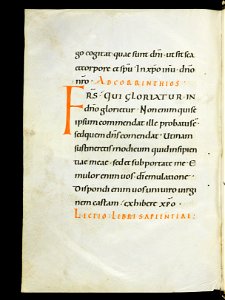 go cogitat quae sunt dñi · ut sit sca
et corpore et spu · In xpo ihu · dño
nro · AD CORRINTHIOS ·
FRS · QUI GLORIATUR IN
dño glorietur · Non enim qui se
ipsum commendat ille probatus ÷
sed quem dñs comendat · Utinam
sustineretis modicum quid insipien
tiae meae · sed et subportate me · E
mulor enim uos · di emulatione ·
Dispondi enim uos uni uiro uirgi
nem castam · exhibere xpo ·
LECTIO · LIBRI SAPIENTIAE ;